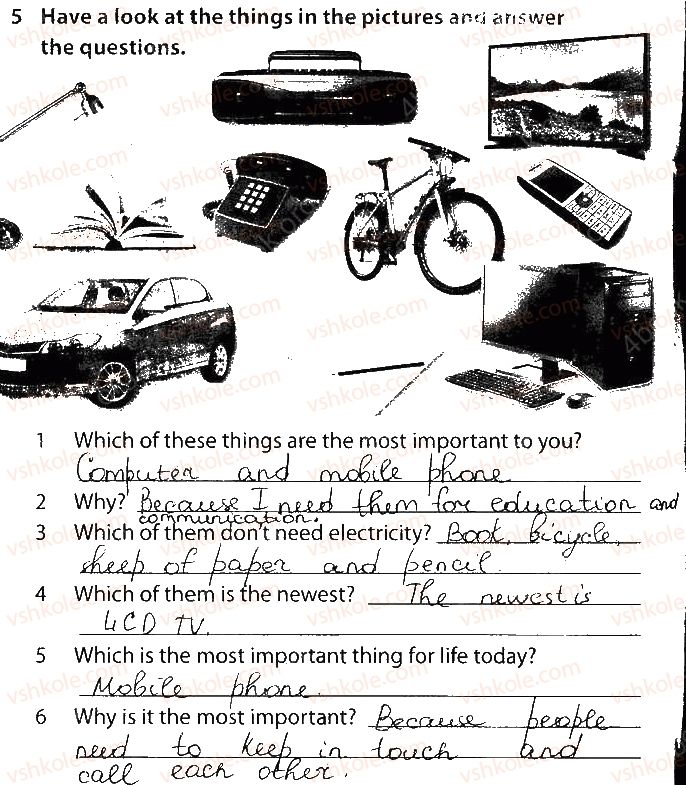 5 Have a look at the things in the pictures and answer
the questions.
1 Which of these things are the most important to you?
Computer and mobile phone
2 Why? Because I need them for education and
communication.
3 Which of them don't need electricity? Book, bicycle,
sheep of paper and pencil.
4 Which of them is the newest? The newest is
LCD TV.
5 Which is the most important thing for life today?
Mobile phone.
6 Why is it the most important? Because people
need to keep in touch and
call each other.
vshkole.com